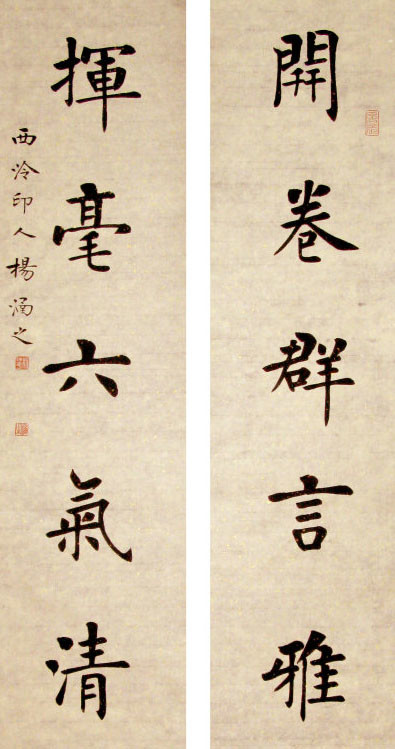 開卷群言雅
揮毫六氣清
西泠印人楊涵之